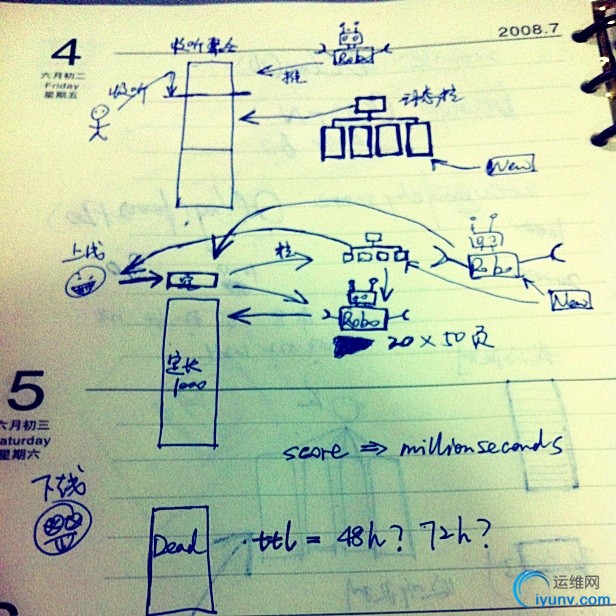 4
六月初二
Friday
星期五
2008.7
收听集合
Robo
推
收听
动态,拉
New
上线
空
拉
Robo
New
Robo
20 × 50页
定长
1000
5
六月初三
aturday
星期六
score ⇒ millionseconds
下线
Dead
ttl = 48h? 72h?
运维网
iyunv.com